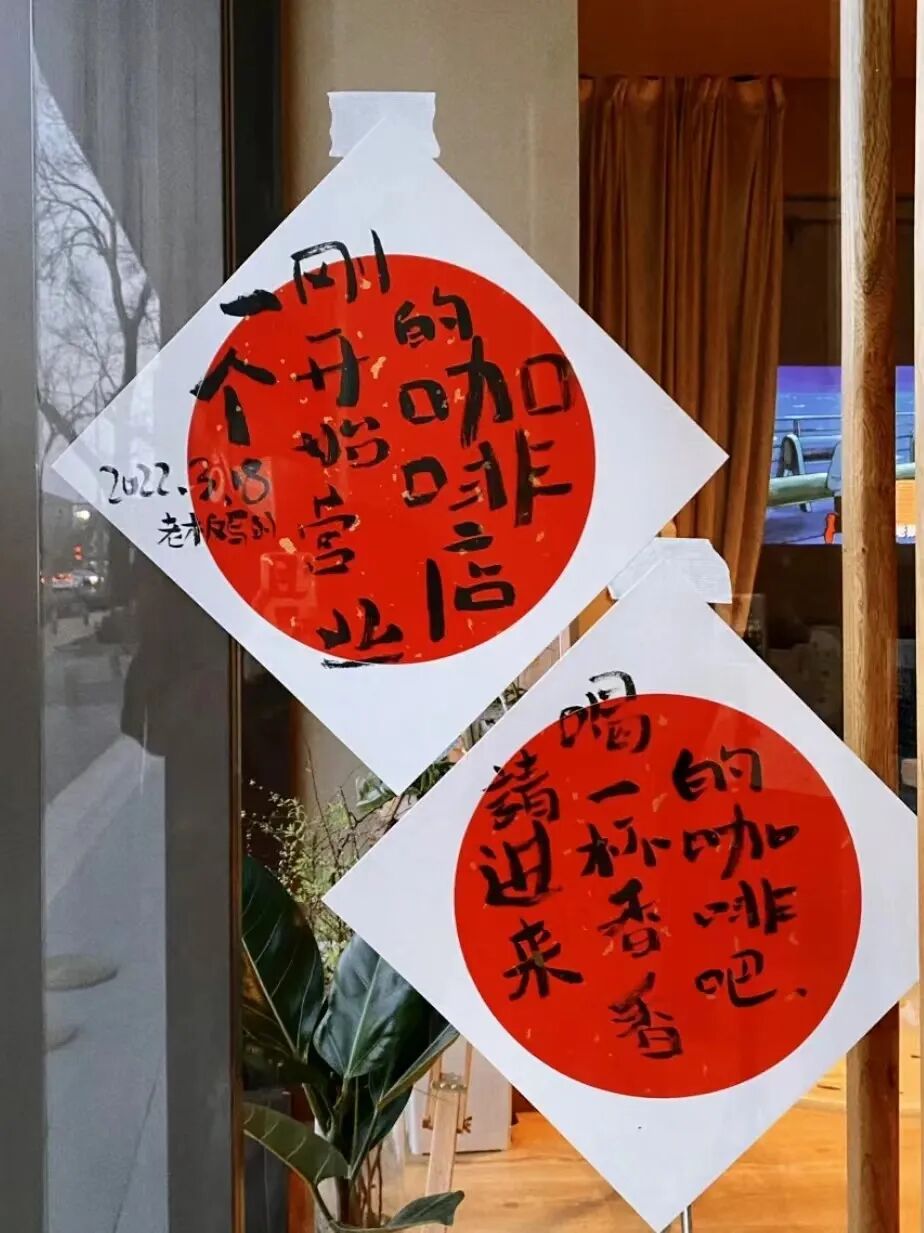 一个
刚开始营业
的咖啡店
2022.3.18
老板写的
請进来
喝一杯香香
的咖啡吧、